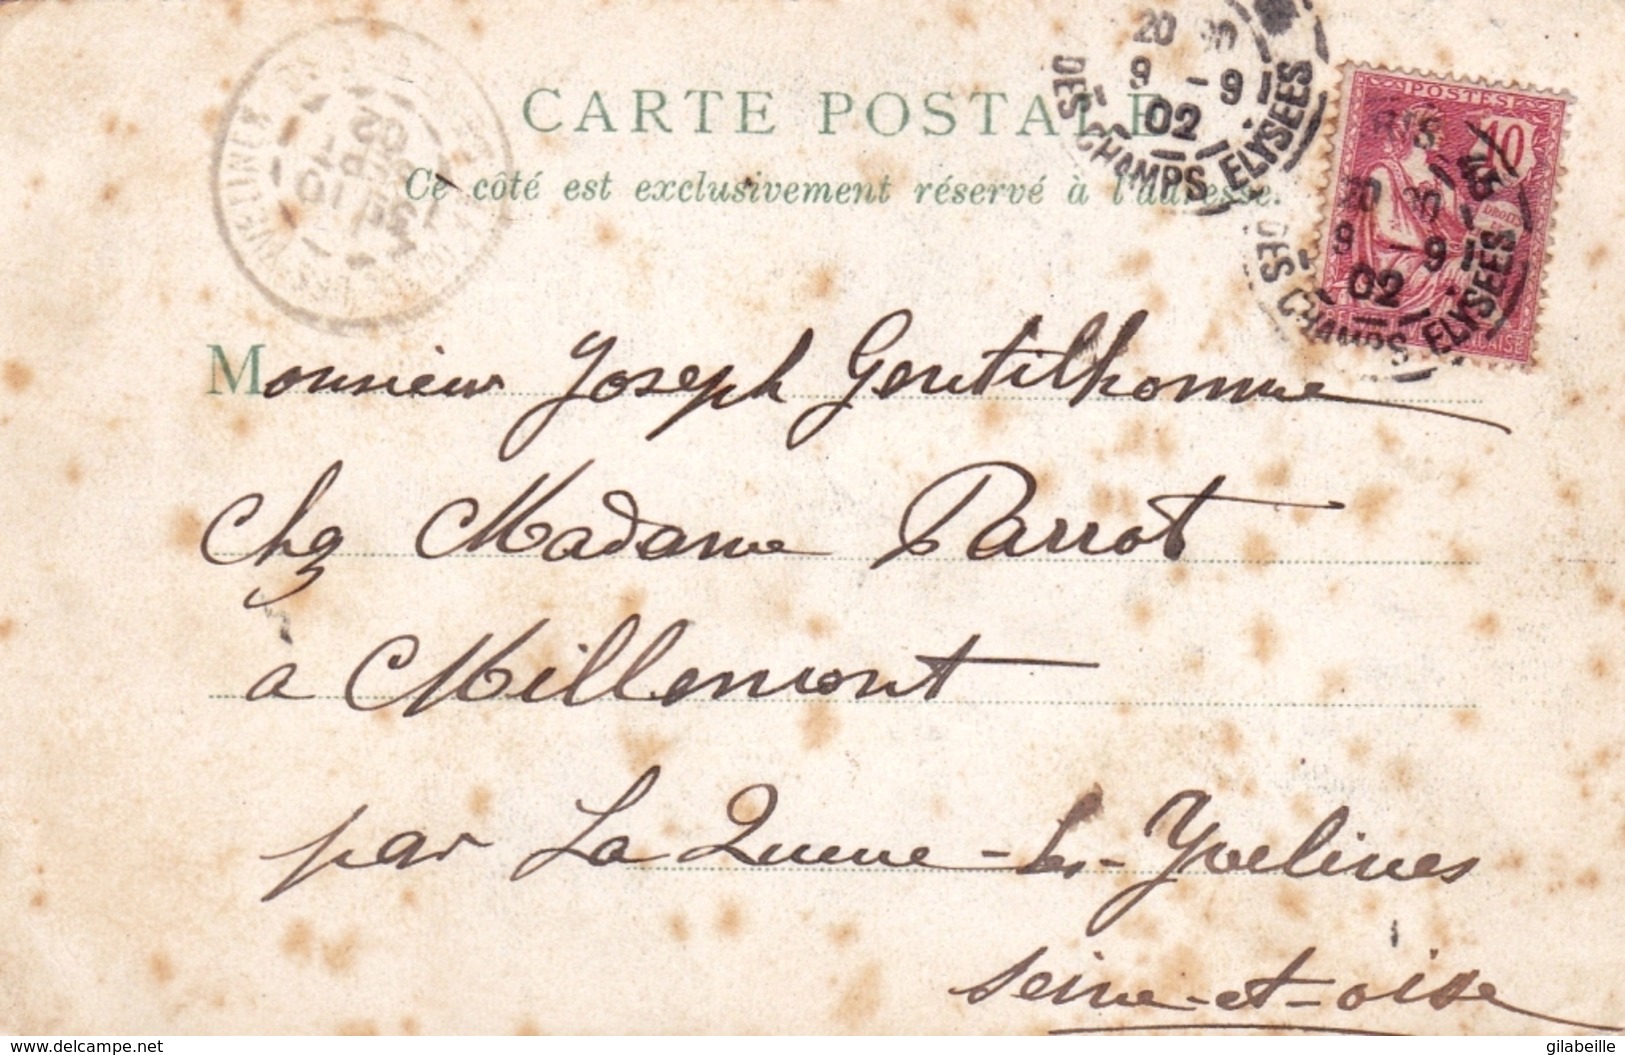 CARTE POSTALE
Ce côté est exclusivement réservé à l'adresse.
20 30
9 - 9
02
DES CHAMPS ELYSEES
POSTES
10
RIS
20 30
9 - 9
02
DES CHAMPS ELYSEES
10
SEPT
02
YVELINES
Monsieur Joseph Gentilhomme
Chez Madame Parrot
a Millemont
par La Queue-les-Yvelines
Seine-et-oise
www.delcampe.net
gilabeille